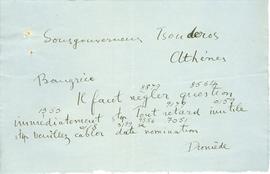 Sousgouverneur Tsouderos
Athènes
Bangrèce
8879 85664
Il faut régler question
1953 9176 0157
immédiatement stp Tout retard inutile
9556 7051
stp veuillez cabler date nomination
Diomède